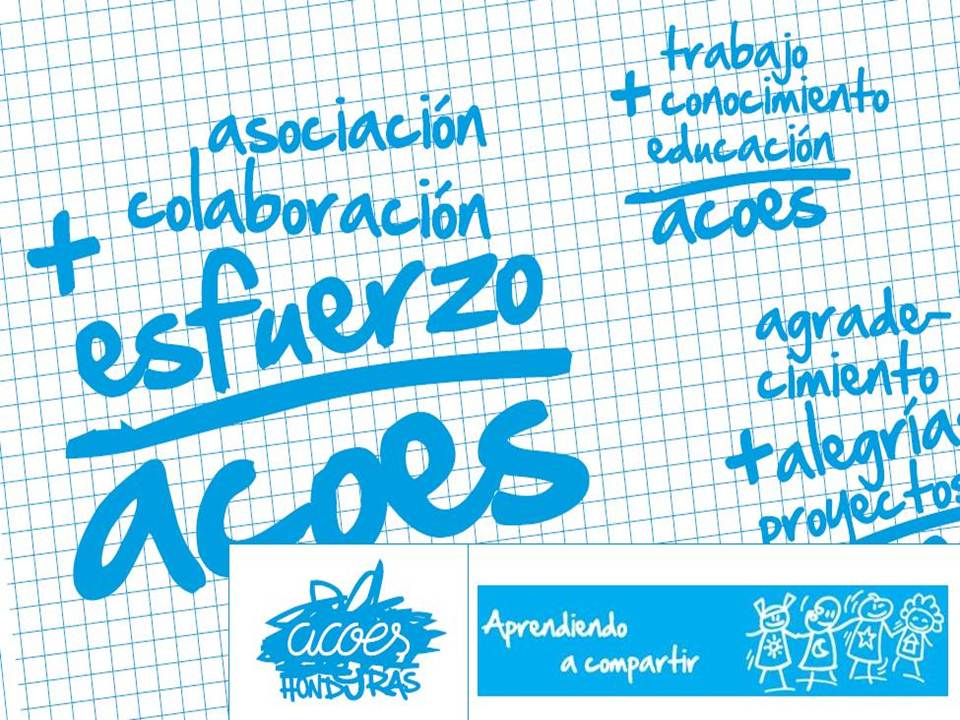 asociación
colaboración
+ esfuerzo
acoes
trabajo
+ conocimiento
educación
acoes
agrade-
cimiento
+ alegría
proyectos
acoes
HONDURAS
Aprendiendo
a compartir